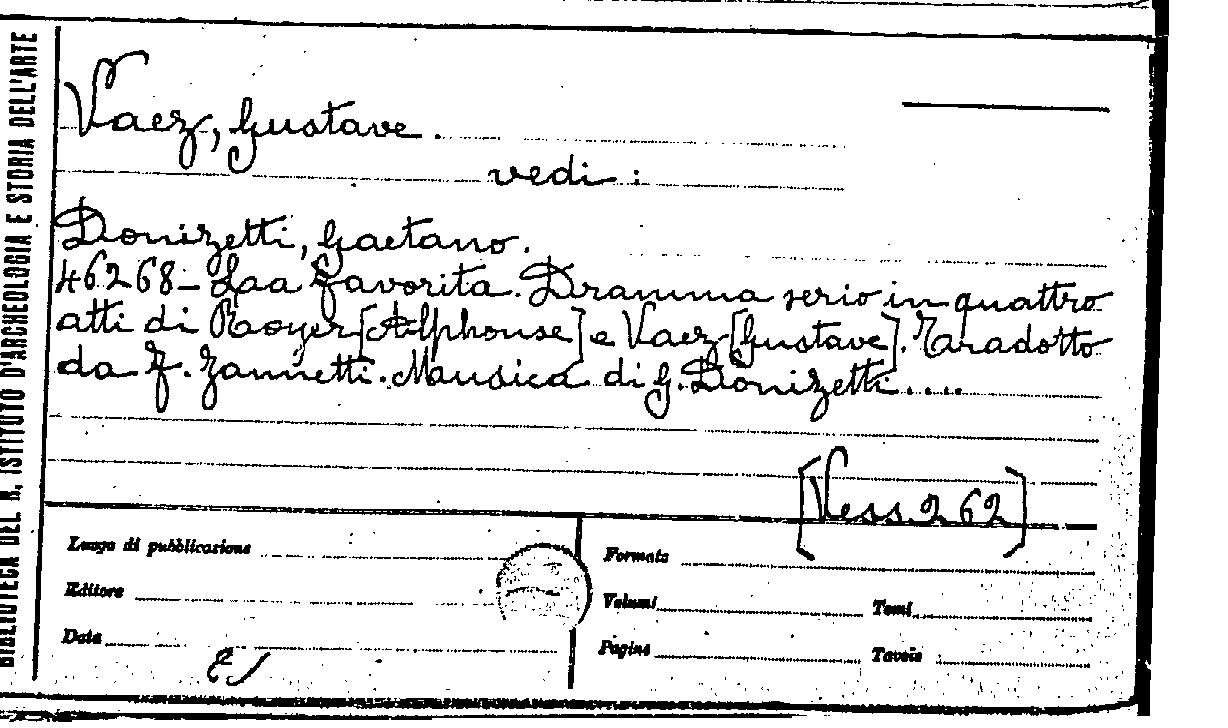 BIBLIOTECA DEL R. ISTITUTO D'ARCHEOLOGIA E STORIA DELL'ARTE
Vaez, Gustave.
vedi :
Donizetti, Gaetano.
46268- Laa Favorita. Dramma serio in quattro
atti di Royer [Alphonse] e Vaez [Gustave]. Taradotto
da F. Jannetti. Mausica di G. Donizetti....
[Vess. 262]
Luogo di pubblicazione
Formato
Editore
Volumi Tomi
Data
Pagine Tavole